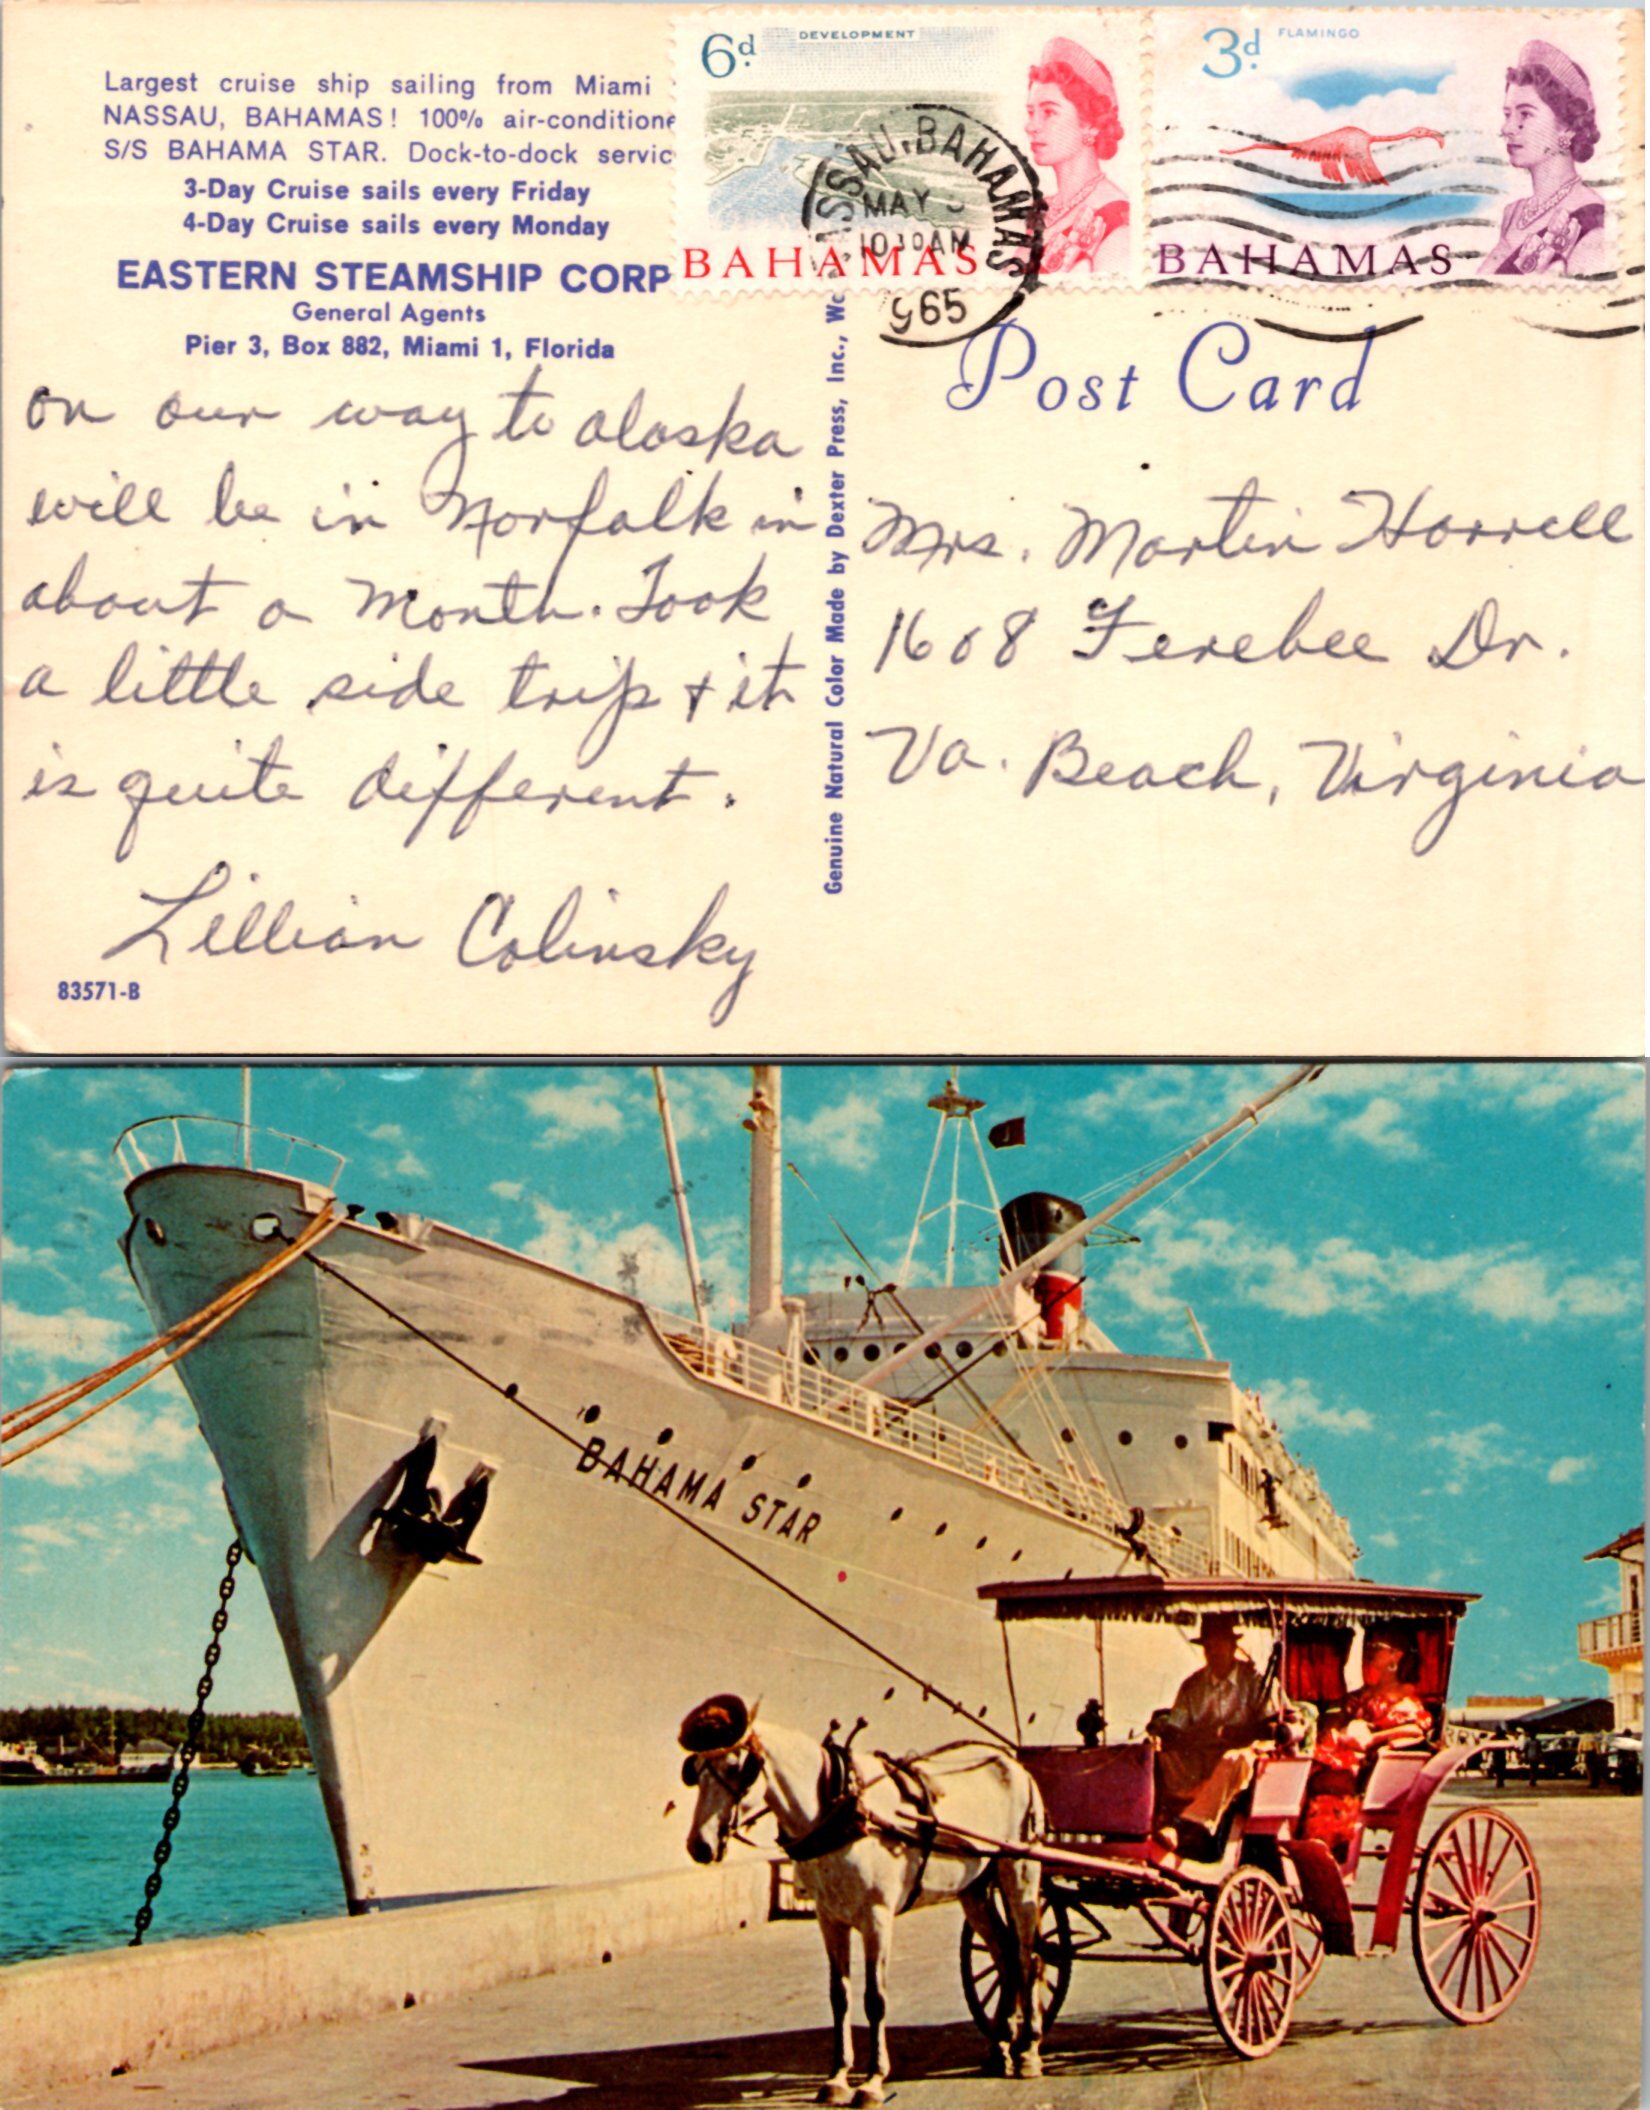 Largest cruise ship sailing from Miami
NASSAU, BAHAMAS! 100% air-conditione
S/S BAHAMA STAR. Dock-to-dock servic
3-Day Cruise sails every Friday
4-Day Cruise sails every Monday
EASTERN STEAMSHIP CORP
General Agents
Pier 3, Box 882, Miami 1, Florida
on our way to alaska
will be in Norfalk in
about a Month. Took
a little side trip & it
is quite different.
Lillian Colinsky
83571-B
Genuine Natural Color Made by Dexter Press, Inc., We
6d DEVELOPMENT
BAHAMAS
3d FLAMINGO
BAHAMAS
SSAU, BAHAMAS
MAY
10 30 AM
965
Post Card
Mrs. Martin Harrell
1608 Ferebee Dr.
Va. Beach, Virginia
BAHAMA STAR